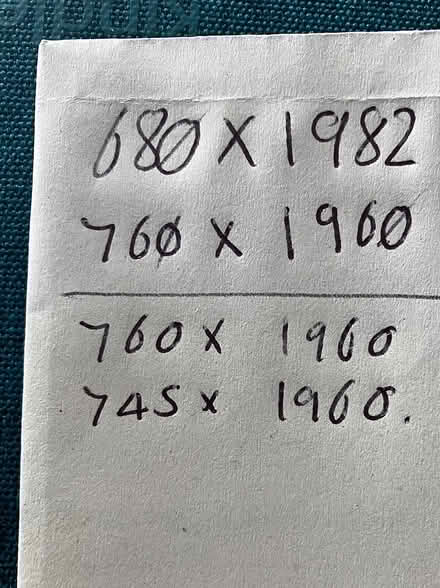 680 x 1982
760 x 1960
760 x 1960
745 x 1960.